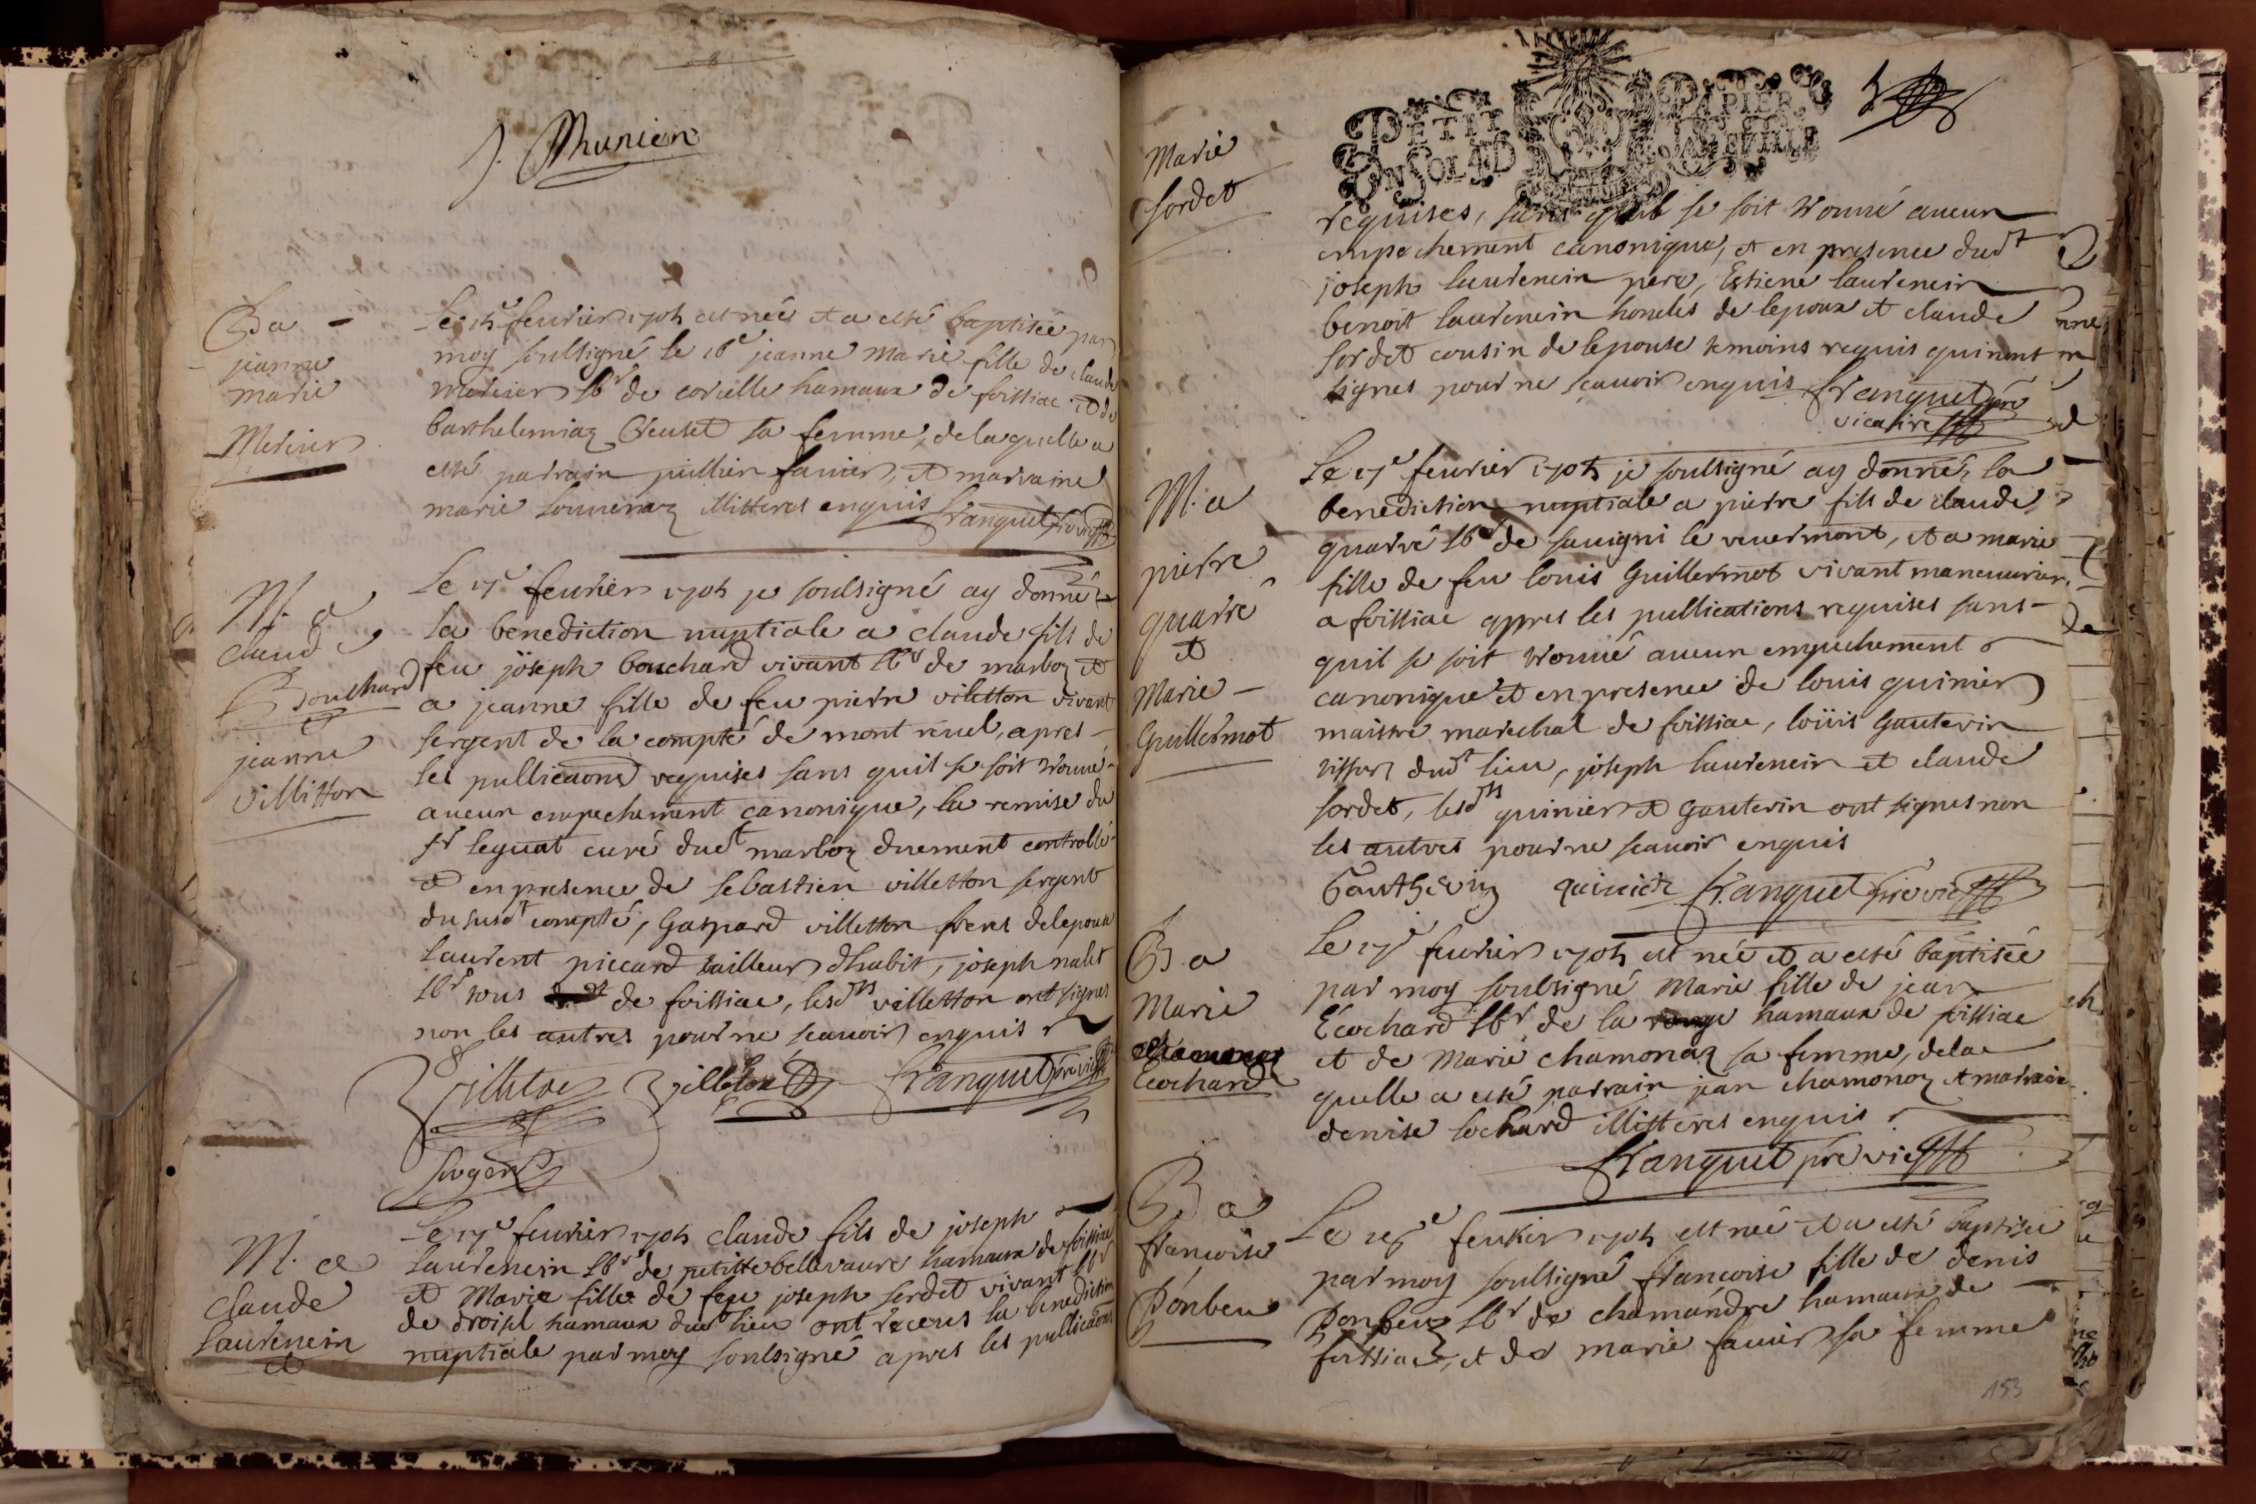 J. Munier
Ba
jeanne
marie
Mericier
Le 15e feurier 1705 est née et a esté baptisée par
moy soussigné le 16e jeanne marie fille de claude
Mericier lbr de corcelle hamaux de foissiac et de
barthelemiaz Creuset sa femme, de laquelle a
esté parrain jullien fauier, et marraine
marie illitteres enquis franquet pre vic
M. a
claude
Bouchard
et
jeanne
Villitton
Le 17e feurier 1705 je soulsigné ay donné
la benediction nuptiale a claude fils de
feu joseph bouchard vivant lbr de marboz et
a jeanne fille de feu pierre viletton vivant
sergent de la compté de mont reuel, apres
les pullicaons requises sans quil se soit trouué
aucun empechement canonique, la remise du
sr leguat curé dudt marboz duement controllé
et en presence de sebastien villetton sergent
du susdt compté, Gaspard villetton freres delepouse
laurent piccard tailleur dhabit, joseph nalet
lbr tous de foissiac, lesdts villetton ont signes
non les autres pour ne scauoir enquis
Villeton Villeton franquet pre vic
sergent
M. a
claude
laurencin
et
Le 17e feurier 1705 claude fils de joseph
laurencin lbr de petitte bellevaure hamaux de foissiac
et Marie fille de feu joseph sordet vivant lbr
de hamaux dudt lieu ont receus la benediction
nuptiale par moy soulsigné apres les pullicaons
Marie
sordet
PETIT PAPIER
requises, sans quil se soit trouué aucun
empechement canonique, et en presence dudt
joseph laurencin pere, Estiene laurencin
benoit laurencin honcles de lepoux et claude
sordet cousin de lepouse temoins requis qui nont
signes pour ne scauoir enquis franquet pre
vicaire
M. a
pierre
quarré
et
Marie
Guillermot
Le 17e feurier 1705 je soulsigné ay donné la
benediction nuptiale a pierre fils de claude
quarré lbr de sauigni le reuermont, et a marie
fille de feu louis Guillermot vivant maneuurier
a foissiac appres les pullications requises sans
quil se soit trouué aucun empechement
canonique et en presence de louis quinier
maistre marechal de foissiac, loüis Gautevin
dudt lieu, joseph laurencin et claude
sordet, lesdts quinier et Gautevin ont signes non
les autres pour ne scauoir enquis
Gauthevin quinier franquet pre vic
Ba
Marie
Ecochard
Le 17e feurier 1705 est née et a esté baptisée
par moy soulsigné Marie fille de jean
Ecochard lbr de la hamaux de foissiac
et de Marie chamonaz sa femme, de la
quelle a esté parrain jean chamonoz et marraine
denise cochard illitteres enquis
franquet pre vic
Ba
francoise
Ponbeu
Le feurier 1705 est née et a esté baptisée
par moy soulsigné francoise fille de denis
Ponbeuf lbr de chamandre hamaux de
foissiac, et de marie fauier sa femme
153